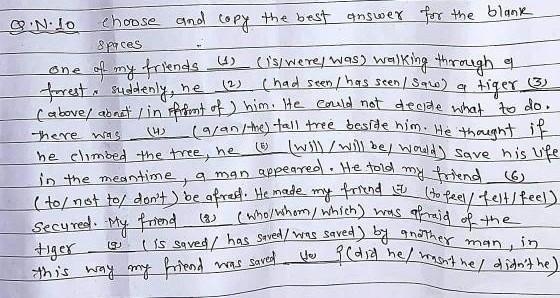 Q.N.10 choose and copy the best answer for the blank
spaces :
one of my friends (1) (is/were/was) walking through a
forest. suddenly, he (2) (had seen/has seen/saw) a tiger (3)
(above/about/in front of) him. He could not decide what to do.
there was (4) (a/an/the) tall tree beside him. He thought if
he climbed the tree, he (5) (will/will be/would) save his life
in the meantime, a man appeared. He told my friend (6)
(to/not to/don't) be afraid. He made my friend (7) (to feel/felt/feel)
secured. My friend (8) (who/whom/which) was afraid of the
tiger (9) (is saved/has saved/was saved) by another man, in
this way my friend was saved (10) ? (did he/wasn't he/didn't he)